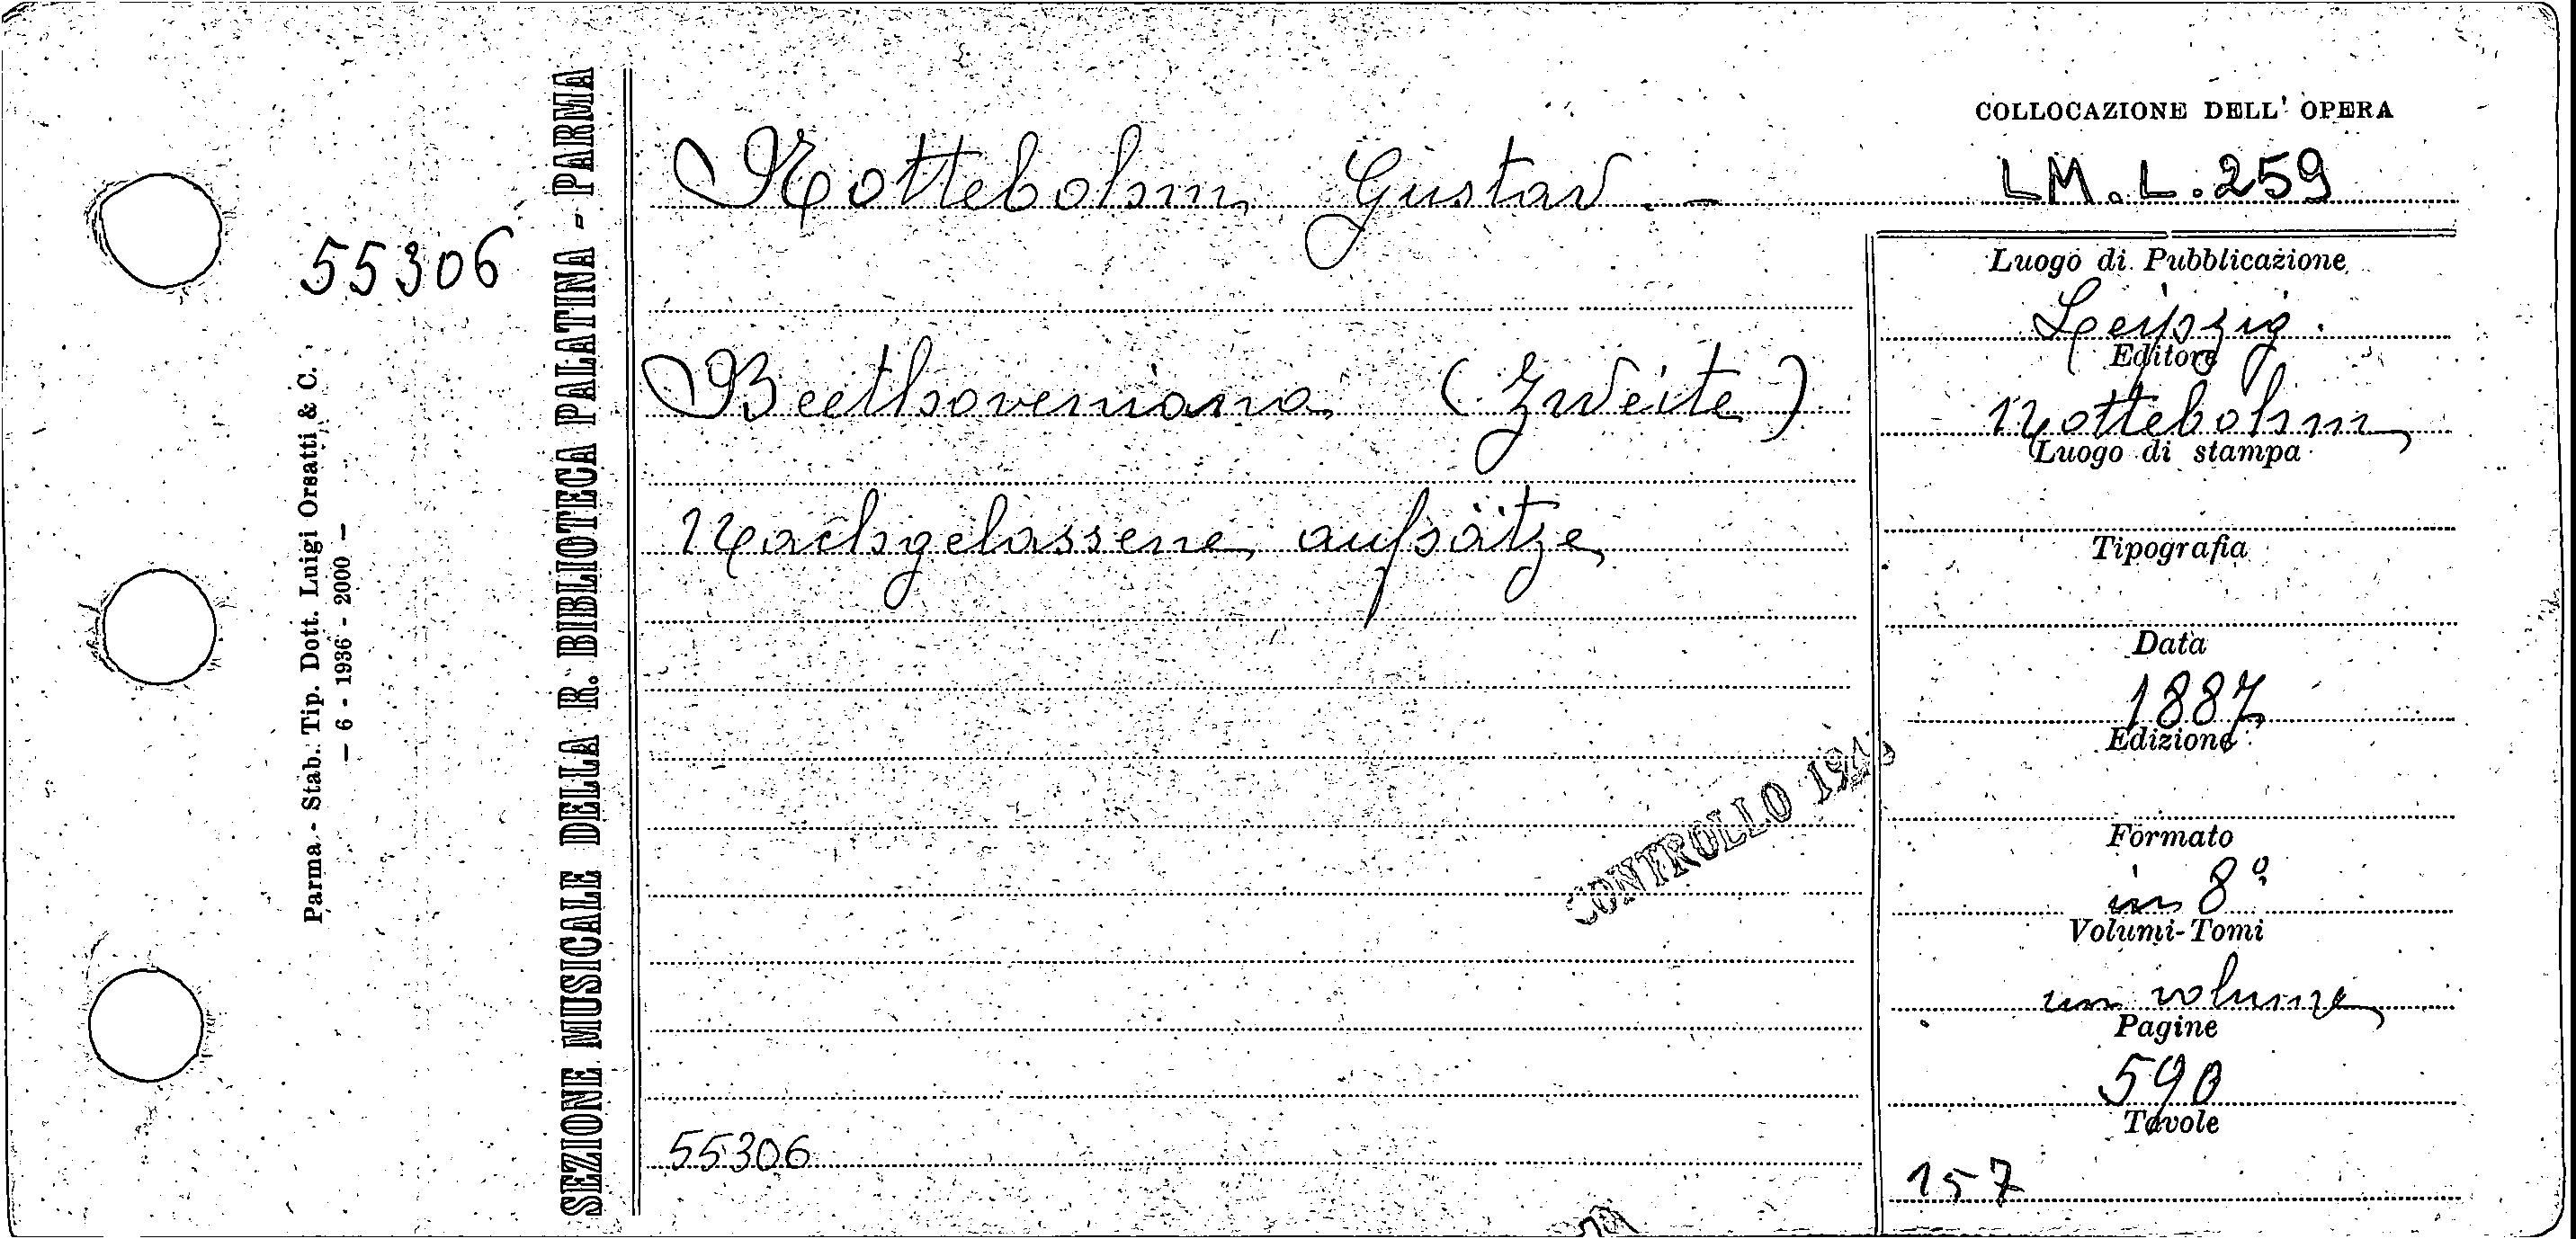 COLLOCAZIONE DELL' OPERA
LM. L. 259
55306
Parma - Stab. Tip. Dott. Luigi Orsatti & C.
— 6 - 1936 - 2000 —
SEZIONE MUSICALE DELLA R. BIBLIOTECA PALATINA - PARMA
Nottebohm Gustav. -
Beethoveniana (Zweite)
Nachgelassene aufsätze
CONTROLLO
55306
Luogo di Pubblicazione
Leipzig.
Editore
Nottebohm
Luogo di stampa
Tipografia
Data
1887
Edizione
Formato
in 8°
Volumi-Tomi
un volume
Pagine
590
Tavole
157